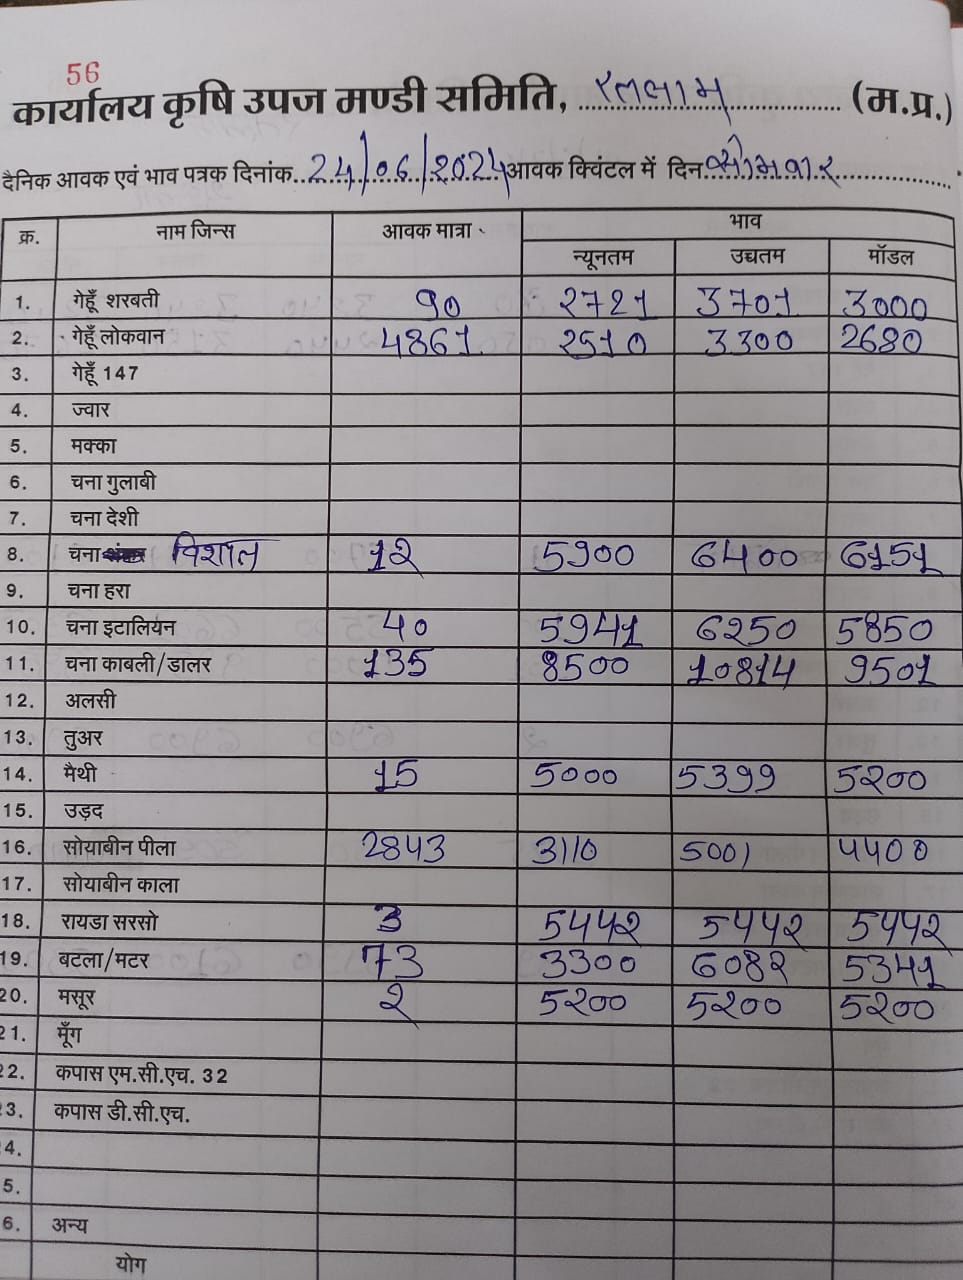 56
कार्यालय कृषि उपज मण्डी समिति, रतलाम (म.प्र.)
दैनिक आवक एवं भाव पत्रक दिनांक 24/06/2024 आवक क्विंटल में दिन सोमवार
क्र. नाम जिन्स आवक मात्रा भाव
न्यूनतम उच्चतम मॉडल
1. गेहूँ शरबती 90 2721 3701 3000
2. गेहूँ लोकवान 4861 2510 3300 2680
3. गेहूँ 147
4. ज्वार
5. मक्का
6. चना गुलाबी
7. चना देशी
8. चना विशाल 12 5900 6400 6151
9. चना हरा
10. चना इटालियन 40 5941 6250 5850
11. चना काबली/डालर 135 8500 10814 9501
12. अलसी
13. तुअर
14. मैथी 15 5000 5399 5200
15. उड़द
16. सोयाबीन पीला 2843 3110 5001 4400
17. सोयाबीन काला
18. रायडा सरसो 3 5442 5442 5442
19. बटला/मटर 73 3300 6082 5341
20. मसूर 2 5200 5200 5200
21. मूँग
22. कपास एम.सी.एच. 32
3. कपास डी.सी.एच.
4.
5.
6. अन्य
योग